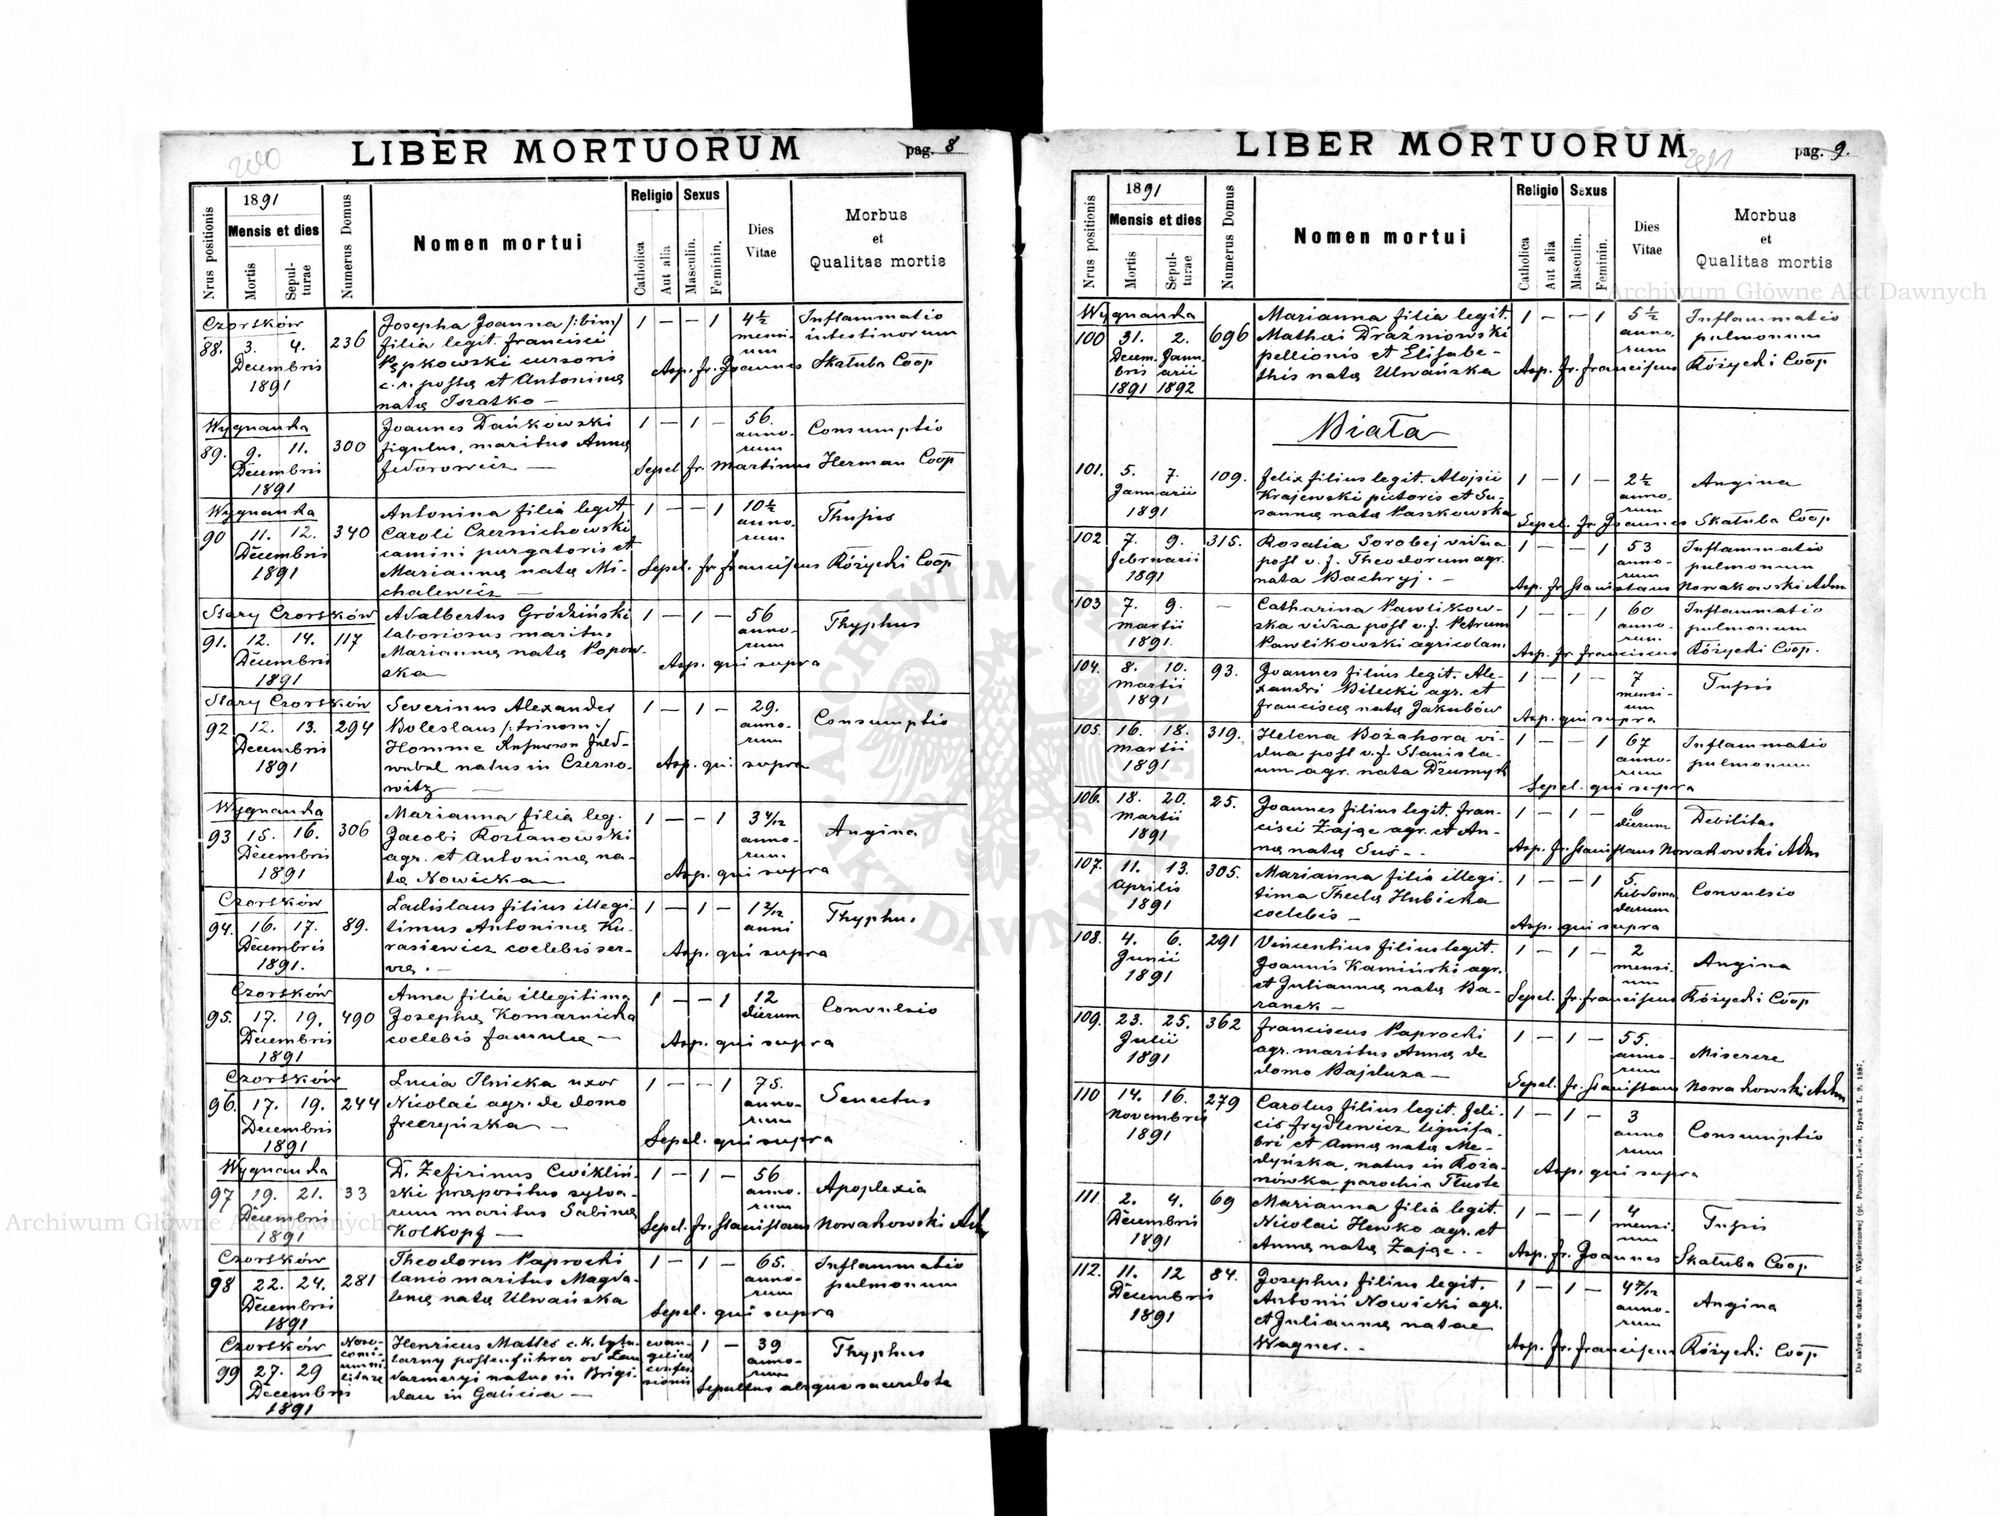 LIBER MORTUORUM
pag. 8
Nrus positionis
1891
Mensis et dies
Mortis
Sepulturae
Numerus Domus
Nomen mortui
Religio
Catholica
Aut alia
Sexus
Masculin.
Feminin.
Dies
Vitae
Morbus
et
Qualitas mortis
Czortków
88. 3. 4. Decembris 1891
236
Josepha Joanna /:bin:/
filia legit. Francisci
Pępkowski cursoris
c. r. postae et Antoninae
natae Tsratko —
1 — — 1
4½ mensium
Inflammatio
intestinorum
Asp. fr. Joannes Skałuba Coop
Wygnanka
89. 9. 11. Decembris 1891
300
Joannes Dańkowski
figulus, maritus Annae
Fedorowicz —
1 — 1 —
56. annorum
Consumptio
Sepel. fr. Martinus Herman Coop
Wygnanka
90 11. 12. Decembris 1891
340
Antonina filia legit.
Caroli Czernichowski
camini purgatoris et
Mariannae natae Mi-
chalewicz —
1 — — 1
10½ annorum
Thusis
Sepel. fr. Franciscus Różycki Coop
Stary Czortków
91. 12. 14. Decembris 1891
117
Adalbertus Gródziński
laboriosus maritus
Mariannae natae Popow-
ska —
1 — 1 —
56 annorum
Thyphus
Asp. qui supra
Stary Czortków
92 12. 13. Decembris 1891
294
Severinus Alexander
Boleslaus /:trinom:/
Homme Feld-
webel natus in Czerno-
witz —
1 — 1 —
29. annorum
Consumptio
Asp. qui supra
Wygnanka
93 15. 16. Decembris 1891
306
Marianna filia leg.
Jacobi Kostanowski
agr. et Antoninae na-
tae Nowicka —
1 — — 1
3 4/12 annorum
Angina
Asp. qui supra
Czortków
94. 16. 17. Decembris 1891.
89.
Ladislaus filius illegi-
timus Antoninae Ku-
rasiewicz coelebis ser-
vae. —
1 — 1 —
1 2/12 anni
Thyphus
Asp. qui supra
Czortków
95. 17. 19. Decembris 1891
490
Anna filia illegitima
Josephae Komarnicka
coelebis famulae —
1 — — 1
12 dierum
Convulsio
Asp. qui supra
Czortków
96. 17. 19. Decembris 1891
244
Lucia Ilnicka uxor
Nicolai agr. de domo
Freczyńska —
1 — — 1
75. annorum
Senectus
Sepel. qui supra
Wygnanka
97 19. 21. Decembris 1891
33
D. Zefirinus Cwikliń-
ski praepositus sylva-
rum maritus Sabinae
Kolkopf —
1 — 1 —
56 annorum
Apoplexia
Sepel. fr. Stanislaus Nowakowski Adm
Czortków
98 22. 24. Decembris 1891
281
Theodorus Paprocki
lanio maritus Magda-
lenae natae Ulwańska
1 — 1 —
65. annorum
Inflammatio
pulmonum
Sepel. qui supra
Czortków
99 27. 29 Decembris 1891
Nosocomium militare
Henricus Mattes c. k. tytu-
larny postenführer od żan
darmeryi natus in Brigi-
dau in Galicia —
evangelicae confessionis
1 —
39 annorum
Thyphus
Sepultus absque sacerdote
LIBER MORTUORUM
pag. 9.
Nrus positionis
1891
Mensis et dies
Mortis
Sepulturae
Numerus Domus
Nomen mortui
Religio
Catholica
Aut alia
Sexus
Masculin.
Feminin.
Dies
Vitae
Morbus
et
Qualitas mortis
Wygnanka
100 31. Decembris 1891 2. Januarii 1892
696
Marianna filia legit.
Mathai Drażniowski
pellionis et Elisabe-
this natae Ulwańska
1 — — 1
5½ annorum
Inflammatio
pulmonum
Asp. fr. Franciscus Różycki Coop
Biała
101. 5. 7. Januarii 1891
109.
Felix filius legit. Alojsii
Krajewski pictoris et Su-
sannae natae Paszkowska
1 — 1 —
2½ annorum
Angina
Sepel. fr. Joannes Skałuba Coop
102 7. 9. Februarii 1891
315.
Rosalia Sorobej vidua
post v. f. Theodorum agr.
nata Bachryj. —
1 — — 1
53 annorum
Inflammatio
pulmonum
Asp. fr. Stanislaus Nowakowski Adm
103 7. 9. Martii 1891.
—
Catharina Pawlikow-
ska vidua post v. f. Petrum
Pawlikowski agricolam
1 — — 1
60 annorum
Inflammatio
pulmonum
Asp. fr. Franciscus Różycki Coop.
104. 8. 10. Martii 1891
93.
Joannes filius legit. Ale-
xandri Bilecki agr. et
Franciscae natae Jakubów
1 — 1 —
7 mensium
Tusis
Asp. qui supra
105. 16. 18. Martii 1891
319.
Helena Bożahora vi-
dua post v. f. Stanisla-
um agr. nata Dżumyk
1 — — 1
67 annorum
Inflammatio
pulmonum
Sepel. qui supra
106. 18. 20. Martii 1891
25.
Joannes filius legit. Fran-
cisci Zając agr. et An-
nae natae Suś - -
1 — 1 —
6 dierum
Debilitas
Asp. fr. Stanislaus Nowakowski Adm
107. 11. 13. Aprilis 1891
305.
Marianna filia illegi-
tima Theclae Hubicka
coelebis —
1 — — 1
5. hebdomadarum
Convulsio
Asp. qui supra
108. 4. 6. Junii 1891
291
Vincentius filius legit.
Joannis Kamiński agr.
et Juliannae natae Ba-
ranek —
1 — 1 —
2 mensium
Angina
Sepel. fr. Franciscus Różycki Coop
109. 23. 25. Julii 1891
362
Franciscus Paprocki
agr. maritus Annae de
domo Bajduza —
1 — 1 —
55. annorum
Miserere
Sepel. fr. Stanislaus Nowakowski Adm
110 14. 16. Novembris 1891
279
Carolus filius legit. Feli-
cis Frydlewicz lignifa-
bri et Annae natae Me-
dyńska, natus in Koza-
nówka parochia Tłuste
1 — 1 —
3 annorum
Consumptio
Asp. qui supra
111 2. 4. Decembris 1891
69
Marianna filia legit.
Nicolai Henko agr. et
Annae natae Zając. - -
1 — — 1
4 mensium
Tusis
Asp. fr. Joannes Skałuba Coop
112. 11. 12 Decembris 1891
84.
Josephus filius legit.
Antonii Nowicki agr.
et Juliannae natae
Wagner. - -
1 — 1 —
4 7/12 annorum
Angina
Asp. fr. Franciscus Różycki Coop
Do nabycia w drukarni A. Wajdowiczowej (pł. Poremby), Lwów, Rynek L. 9. 1887.
Archiwum Główne Akt Dawnych
Archiwum Główne Akt Dawnych
ARCHIWUM GŁÓWNE AKT DAWNYCH